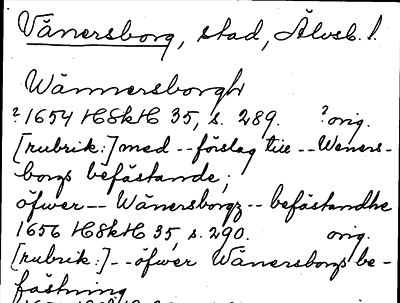 Vänersborg, stad, Älvsb. l.
Wännersborgh
?1654 HSkH 35, s. 289. ?orig.
[rubrik:] med -- förslag till -- Weners-
borgs befästande;
öfwer -- Wänersborgz -- befästandhe
1656 HSkH 35, s. 290. orig.
[rubrik:] -- öfwer Wänersborgs be-
fästning